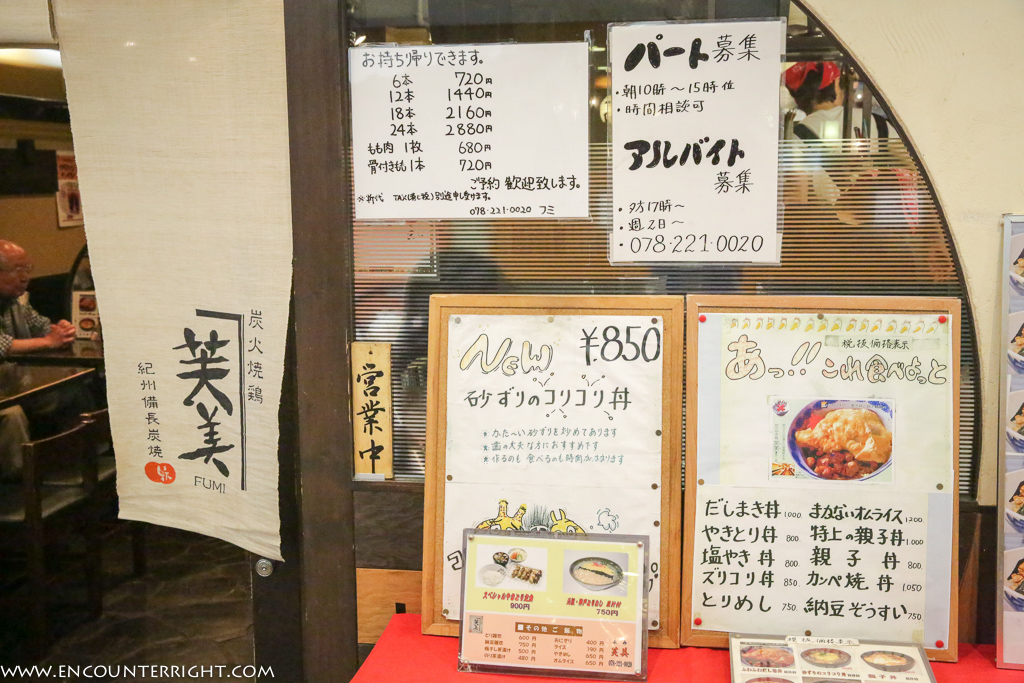 炭火焼鶏
芙美
紀州備長炭焼
FUMI
お持ち帰りできます。
6本 720円
12本 1440円
18本 2160円
24本 2880円
もも肉 1枚 680円
骨付きもも 1本 720円
ご予約 歓迎致します。
078-221-0020 フミ
パート募集
・朝10時〜15時位
・時間相談可
アルバイト
募集
・夕方17時〜
・週2日〜
・078-221-0020
営業中
NEW ¥850
砂ずりのコリコリ丼
★かた〜い砂ずりを炒めてあります
★歯の丈夫な方におすすめです
★作るのも食べるのも時間がかかります
税抜価格表示
あっ!! これ食べよっと
だしまき丼 1000
やきとり丼 800
塩やき丼 800
ズリコリ丼 850
とりめし 750
まかないオムライス 1200
特上の親子丼 1000
親子丼 800
カンペ焼丼 1050
納豆ぞうすい 750
900円
750円
■その他ご飯物
600円
750円
500円
480円
おにぎり 400円
ライス 190円
オムライス 650円
芙美
税抜価格表示
親子丼
WWW.ENCOUNTERRIGHT.COM